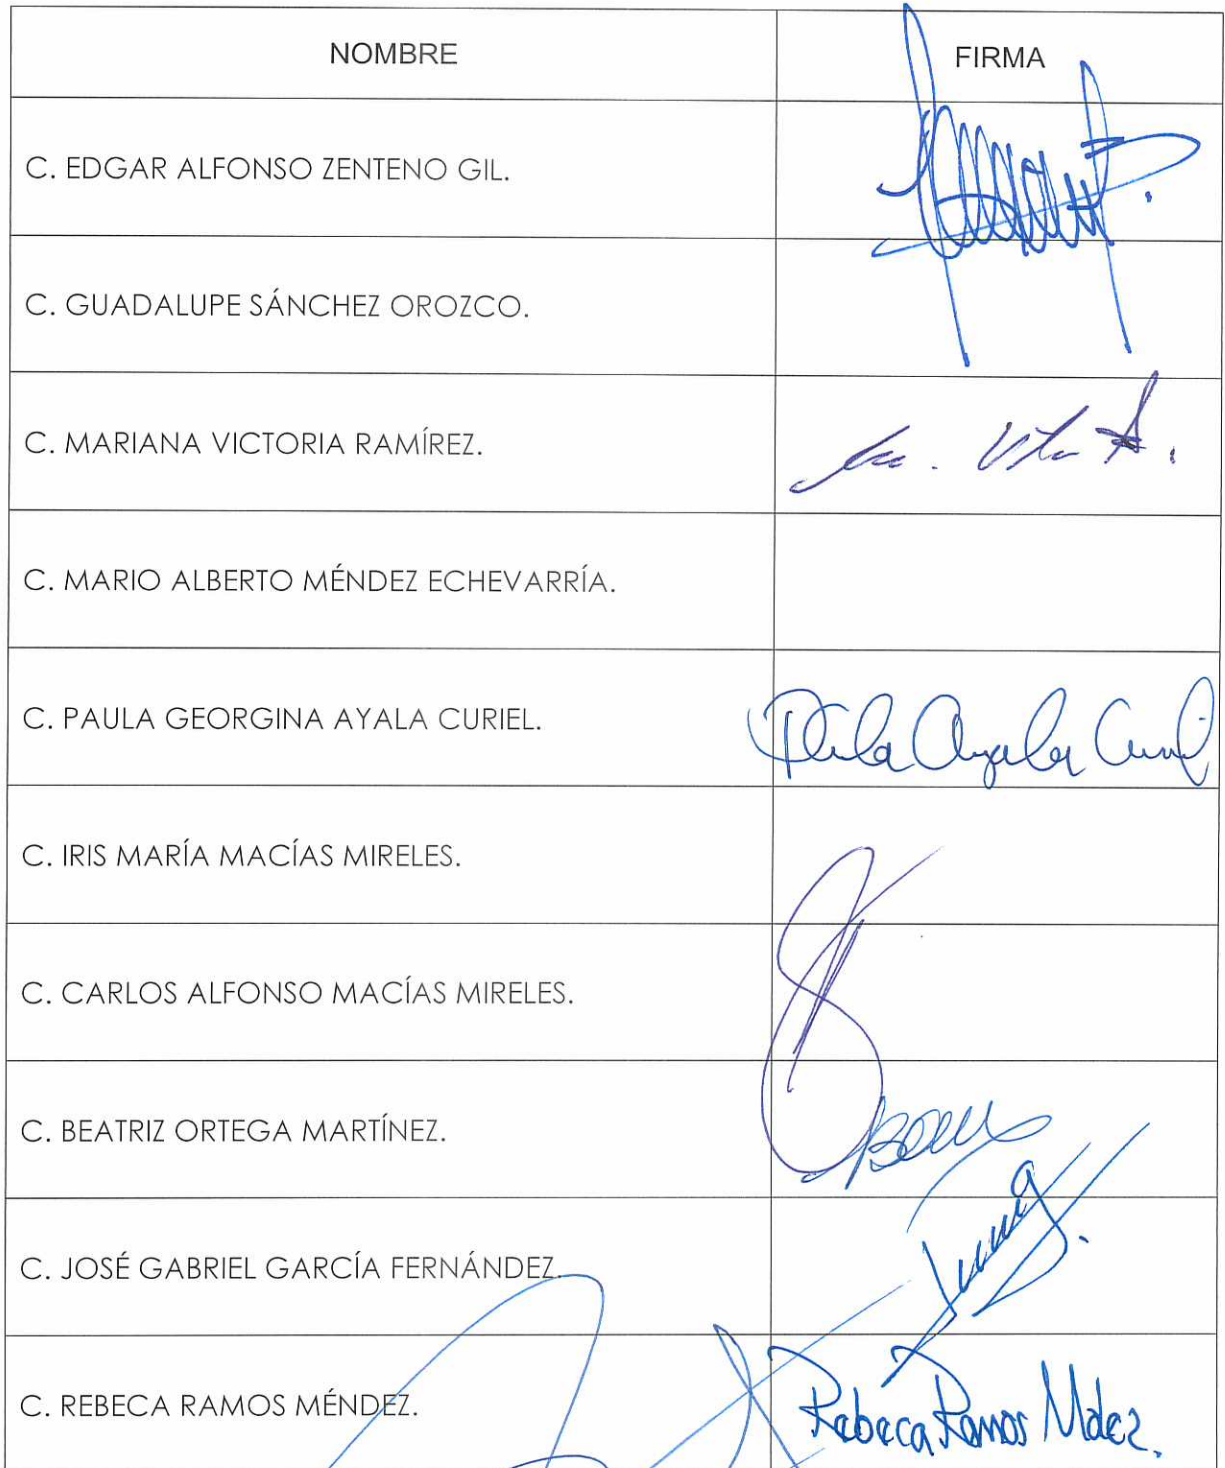 NOMBRE FIRMA
C. EDGAR ALFONSO ZENTENO GIL.
C. GUADALUPE SÁNCHEZ OROZCO.
C. MARIANA VICTORIA RAMÍREZ.
C. MARIO ALBERTO MÉNDEZ ECHEVARRÍA.
C. PAULA GEORGINA AYALA CURIEL. Paula Ayala Curiel
C. IRIS MARÍA MACÍAS MIRELES.
C. CARLOS ALFONSO MACÍAS MIRELES.
C. BEATRIZ ORTEGA MARTÍNEZ.
C. JOSÉ GABRIEL GARCÍA FERNÁNDEZ.
C. REBECA RAMOS MÉNDEZ. Rebeca Ramos Mdez.